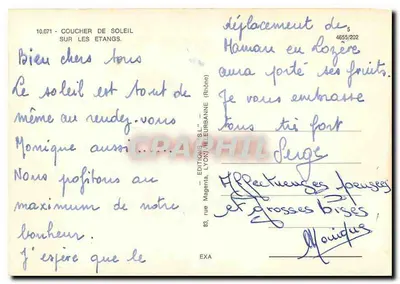 10.671 - COUCHER DE SOLEIL
SUR LES ETANGS.
4655/202
Bien chers tous
Le soleil est tout de
même au rendez-vous
Monique aussi ......
Nous profitons au
maximum de notre
bonheur.
J'espère que le
EXA
- EDITIONS "S.L" -
83, rue Magenta, LYON-VILLEURBANNE (Rhône)
déplacement de
Maman en Lozère
aura porté ses fruits.
Je vous embrasse
tous très fort
Serge
Affectueuses pensées
et grosses bises
Monique